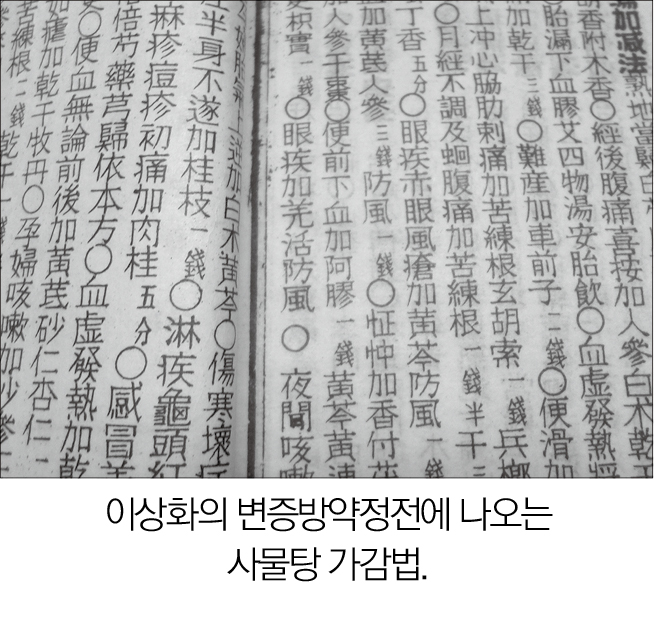 加減法熟地當歸白
香附木香○經後腹痛喜按加人參白朮乾
胎漏下血膠艾四物湯安胎飮○血虛發熱將
加乾干三錢○難産加車前子二錢○便滑加
上冲心脇肋刺痛加苦練根玄胡索一錢兵榔
○月經不調及蛔腹痛加苦練根一錢半干三
丁香五分○眼疾赤眼風瘡加黄芩防風一錢
加黄芪人參三錢防風一錢○怔忡加香付茯
加人參干棗○便前下血加阿膠一錢黄芩黄連
枳實一錢○眼疾加羌活防風○夜間咳嗽
加白朮黄芩○傷寒壞
半身不遂加桂枝一錢○淋疾龜頭紅
麻疹痘疹初痛加肉桂五分○感冒
倍芍藥芎歸依本方○血虛發熱加乾
○便血無論前後加黄芪砂仁杏仁
如瘧加乾干牧丹○孕婦咳嗽加沙參
苦練根二錢乾干一錢
이상화의 변증방약정전에 나오는
사물탕 가감법.